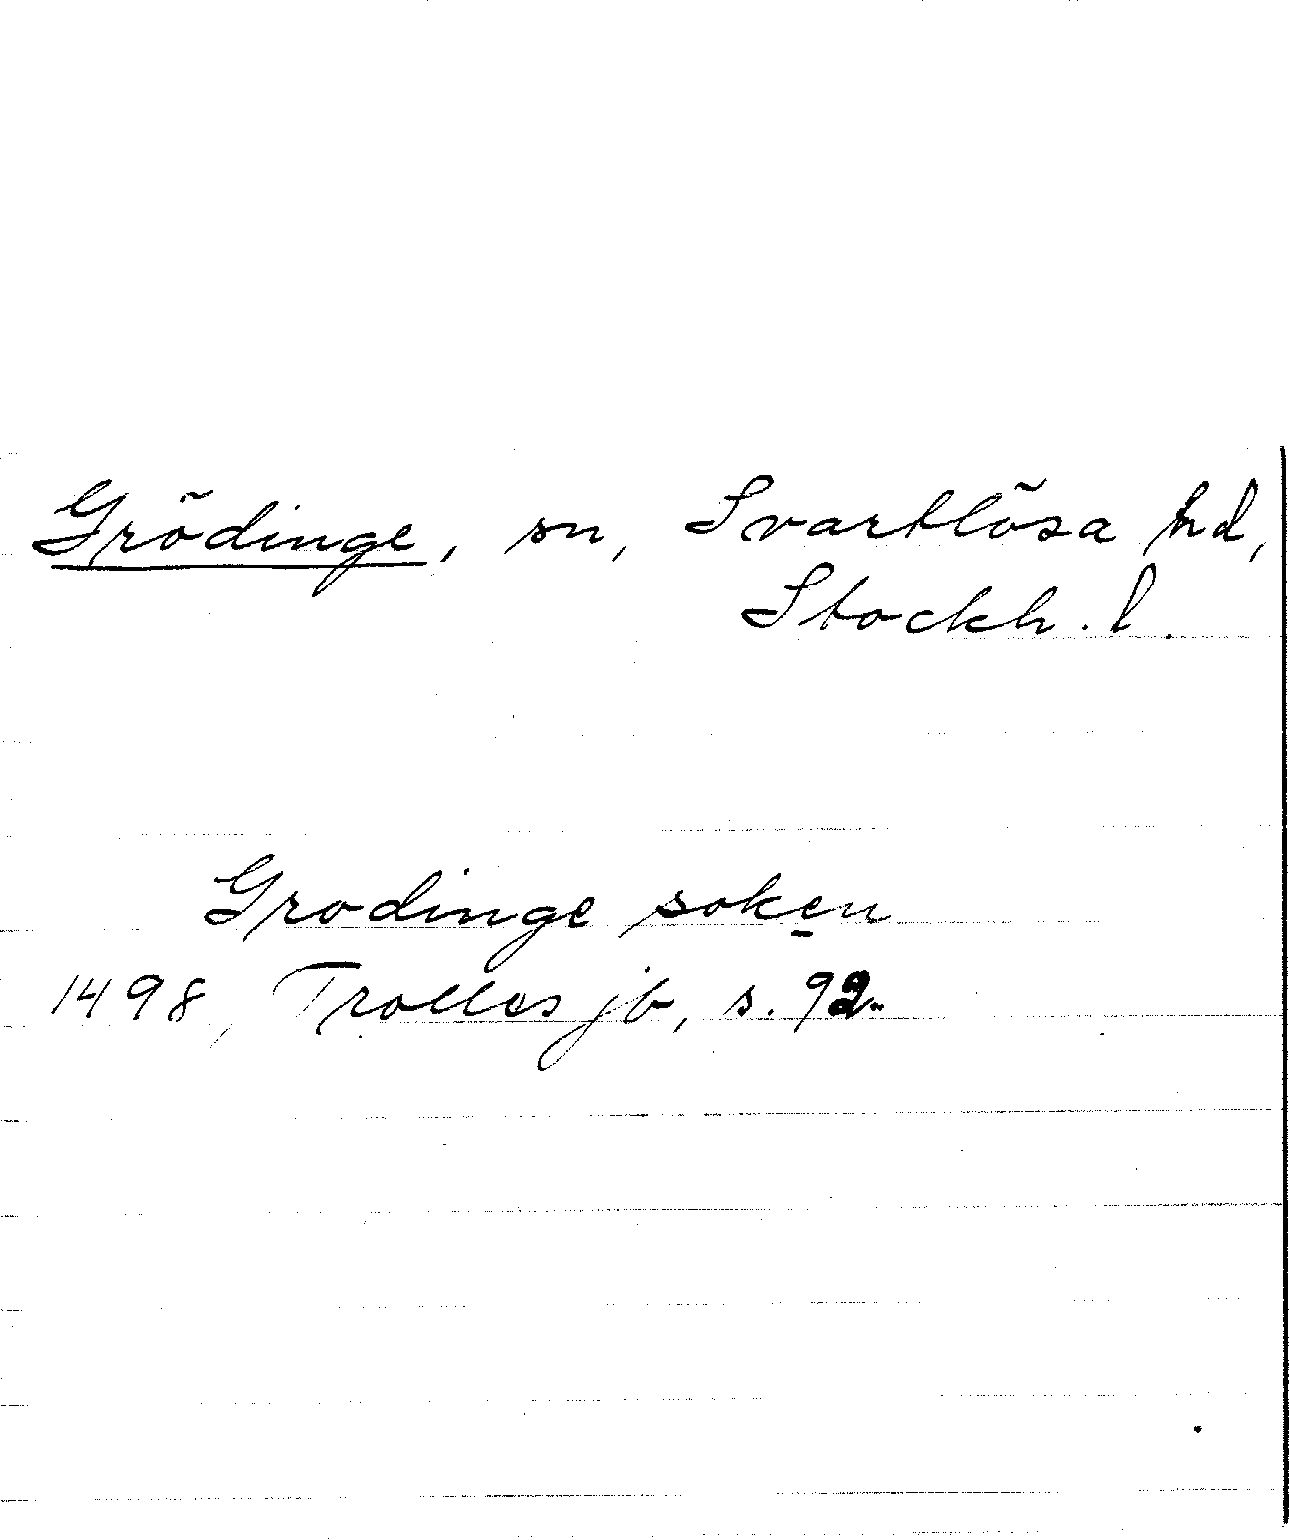 Grödinge, sn, Svartlösa hd,
Stockh. l.
Grodinge soken
1498, Trolles jb, s. 92.